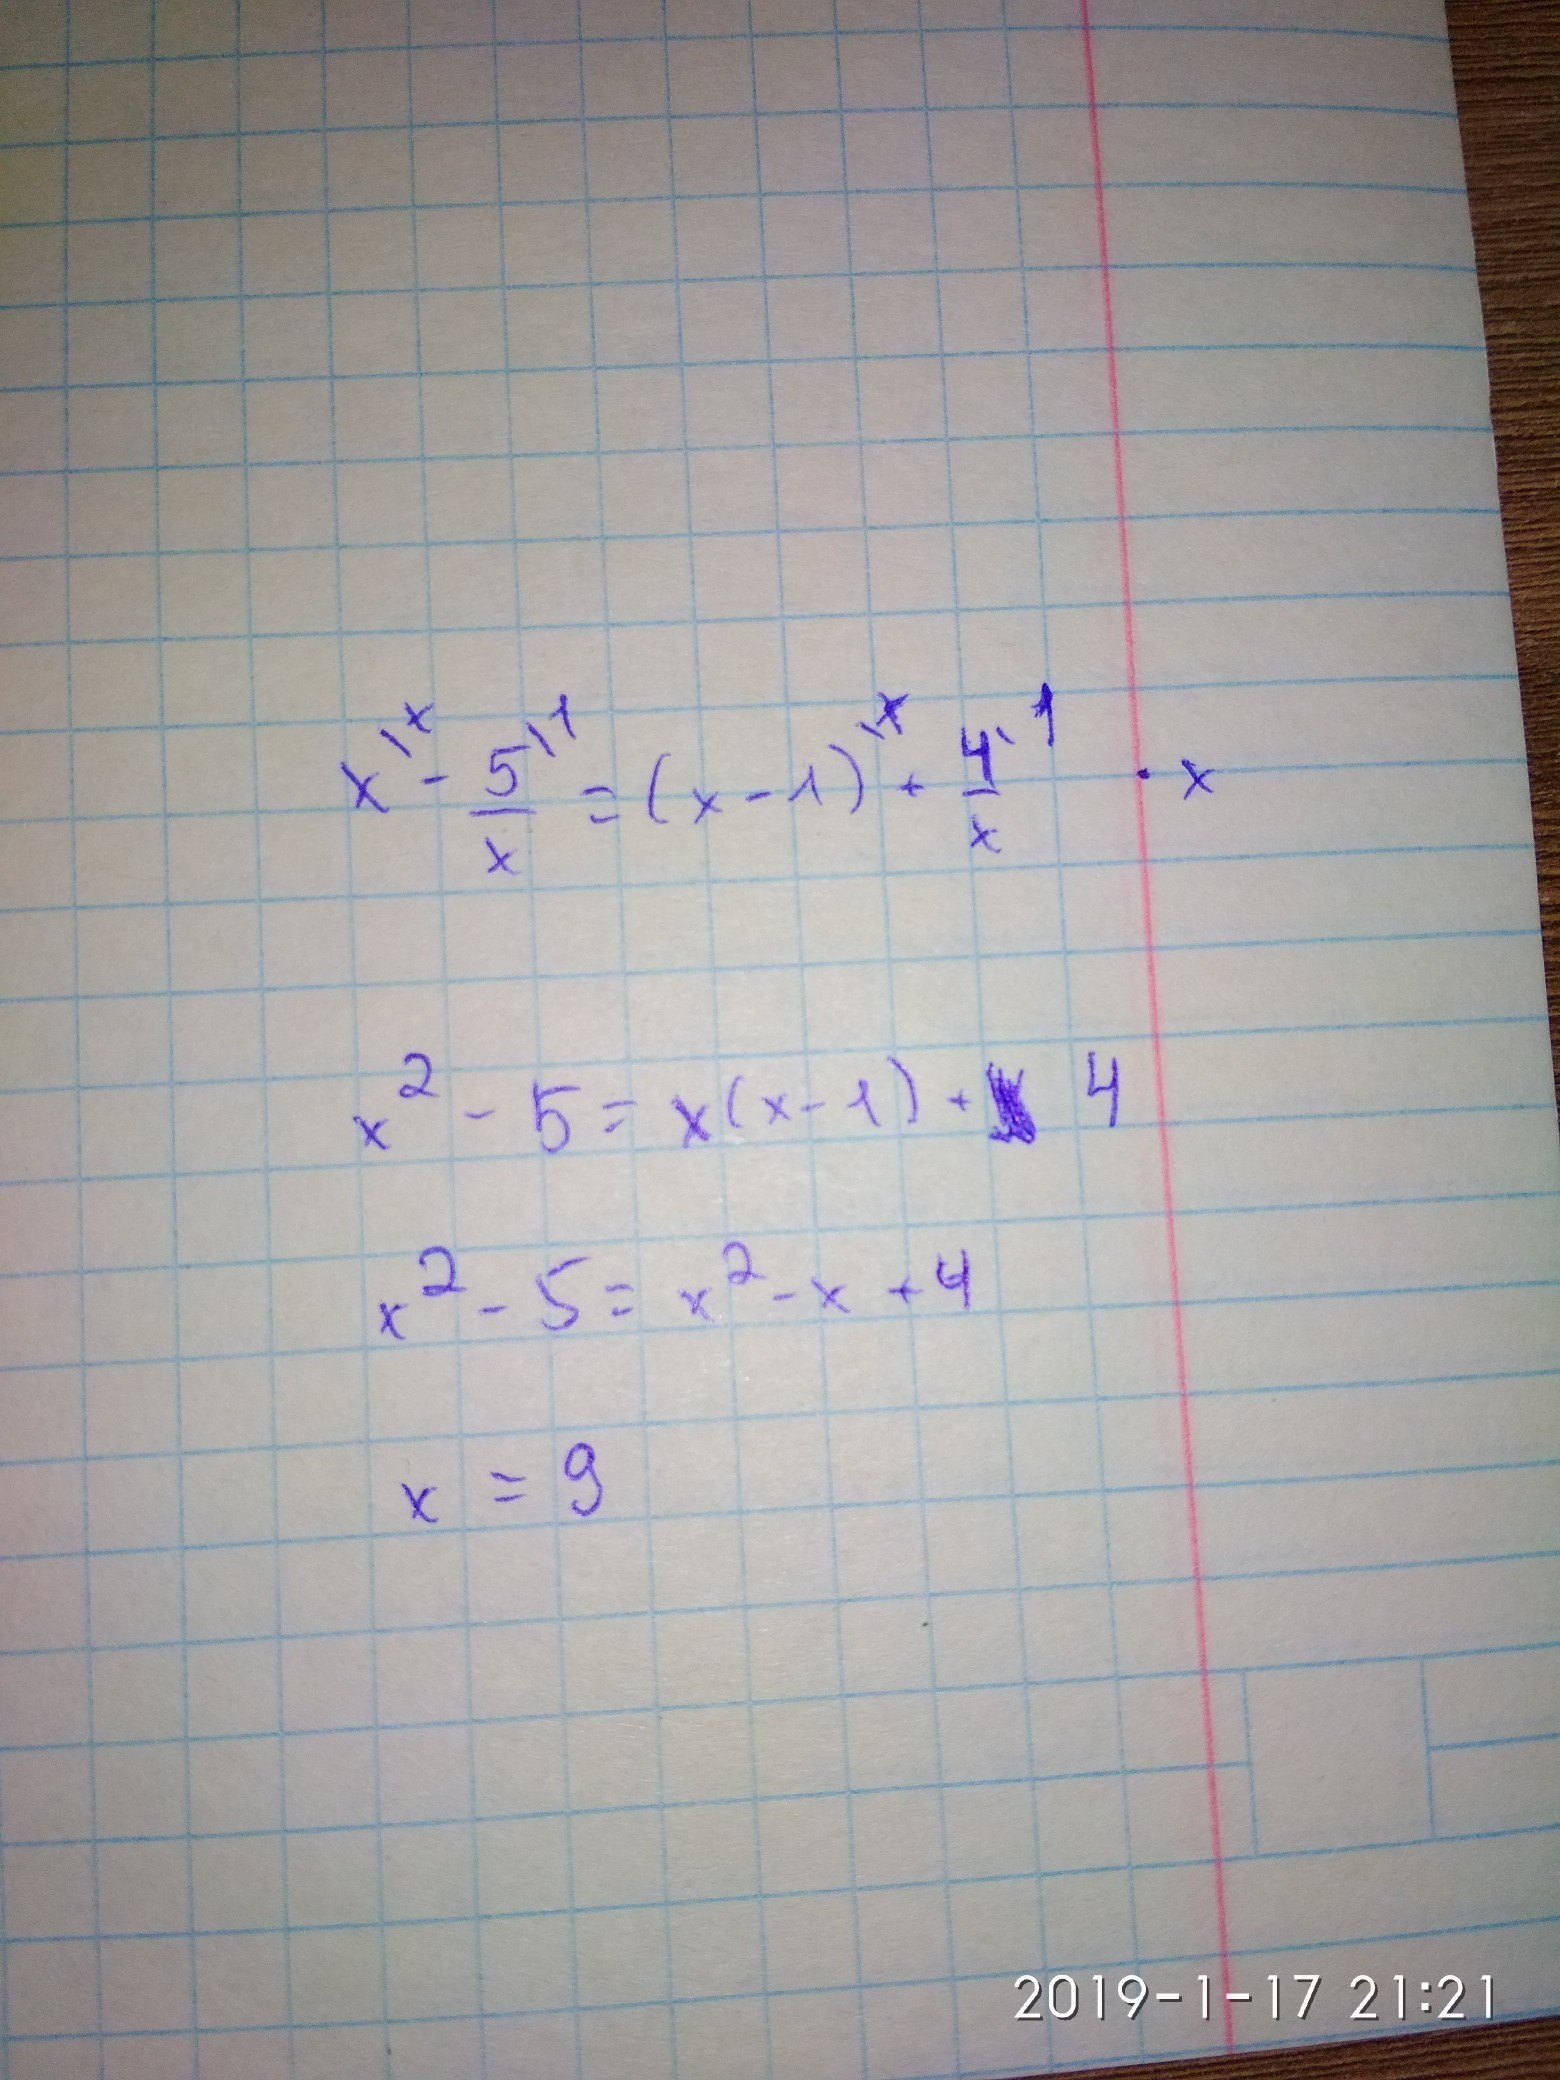 x\x - 5\1/x = (x-1)\x + 4\1/x · x
x² - 5 = x(x-1) + 4
x² - 5 = x² - x + 4
x = 9
2019-1-17 21:21